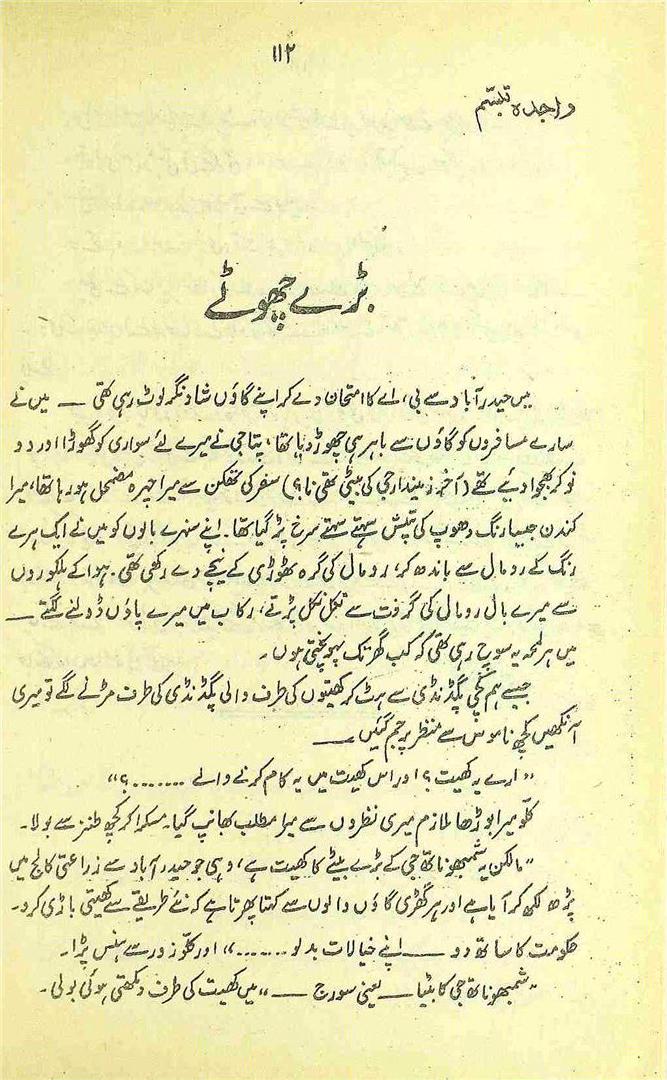 ۱۱۲
واجدہ تبسّم
بڑے چھوٹے
میں حیدرآباد سے بی، اے کا امتحان دے کر اپنے گاؤں شاد نگر لوٹ رہی تھی — میں نے
سارے مسافروں کو گاؤں سے باہر ہی چھوڑ دیا تھا، پتاجی نے میرے لئے سواری کو گھوڑا اور دو
نوکر بھجوا دیئے تھے (آخر زمیندار جی کی بیٹی تھی نا؟) سفر کی تھکن سے میرا چہرہ مضمحل ہو رہا تھا، میرا
کندن جیسا رنگ دھوپ کی تپش سہتے سہتے سرخ پڑ گیا تھا۔ اپنے سنہرے بالوں کو میں نے ایک ہرے
رنگ کے رومال سے باندھ کر، رومال کی گرہ ٹھوڑی کے نیچے دے رکھی تھی۔ ہوا کے ہلکوروں
سے میرے بال رومال کی گرفت سے نکل نکل پڑتے، رکاب میں میرے پاؤں ڈولنے لگتے —
میں ہر لمحہ یہ سوچ رہی تھی کہ کب گھر تک پہونچتی ہوں۔
جیسے ہم کچی پگڈنڈی سے ہٹ کر کھیتوں کی طرف والی پگڈنڈی کی طرف مڑنے لگے تو میری
آنکھیں کچھ نامونس سے منظر پر جم گئیں —
"ارے یہ کھیت؟ اور اس کھیت میں یہ کام کرنے والے .......؟"
کلّو میرا بوڑھا ملازم میری نظروں سے میرا مطلب بھانپ گیا۔ مسکرا کر کچھ طنز سے بولا۔
"مالکن یہ شمبھوناتھ جی کے بڑے بیٹے کا کھیت ہے، وہی جو حیدرآباد سے زراعتی کالج میں
پڑھ لکھ کر آیا ہے اور ہر گھڑی گاؤں والوں سے کہتا پھرتا ہے کہ نئے طریقے سے کھیتی باڑی کرو۔
حکومت کا ساتھ دو — اپنے خیالات بدلو ......." اور کلّو زور سے ہنس پڑا۔
"شمبھوناتھ جی کا بیٹا — یعنی سورج —" میں کھیت کی طرف دیکھتی ہوئی بولی۔